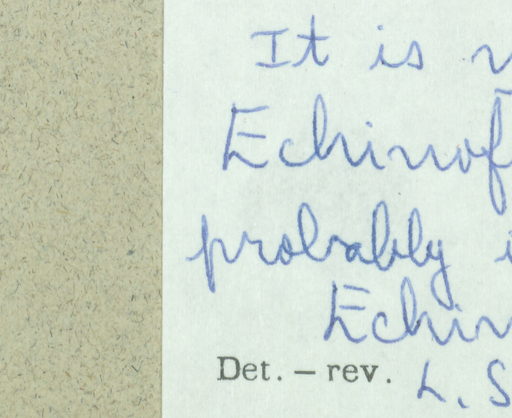 It is
Echinof
probably i
Echin
Det. – rev. L. S